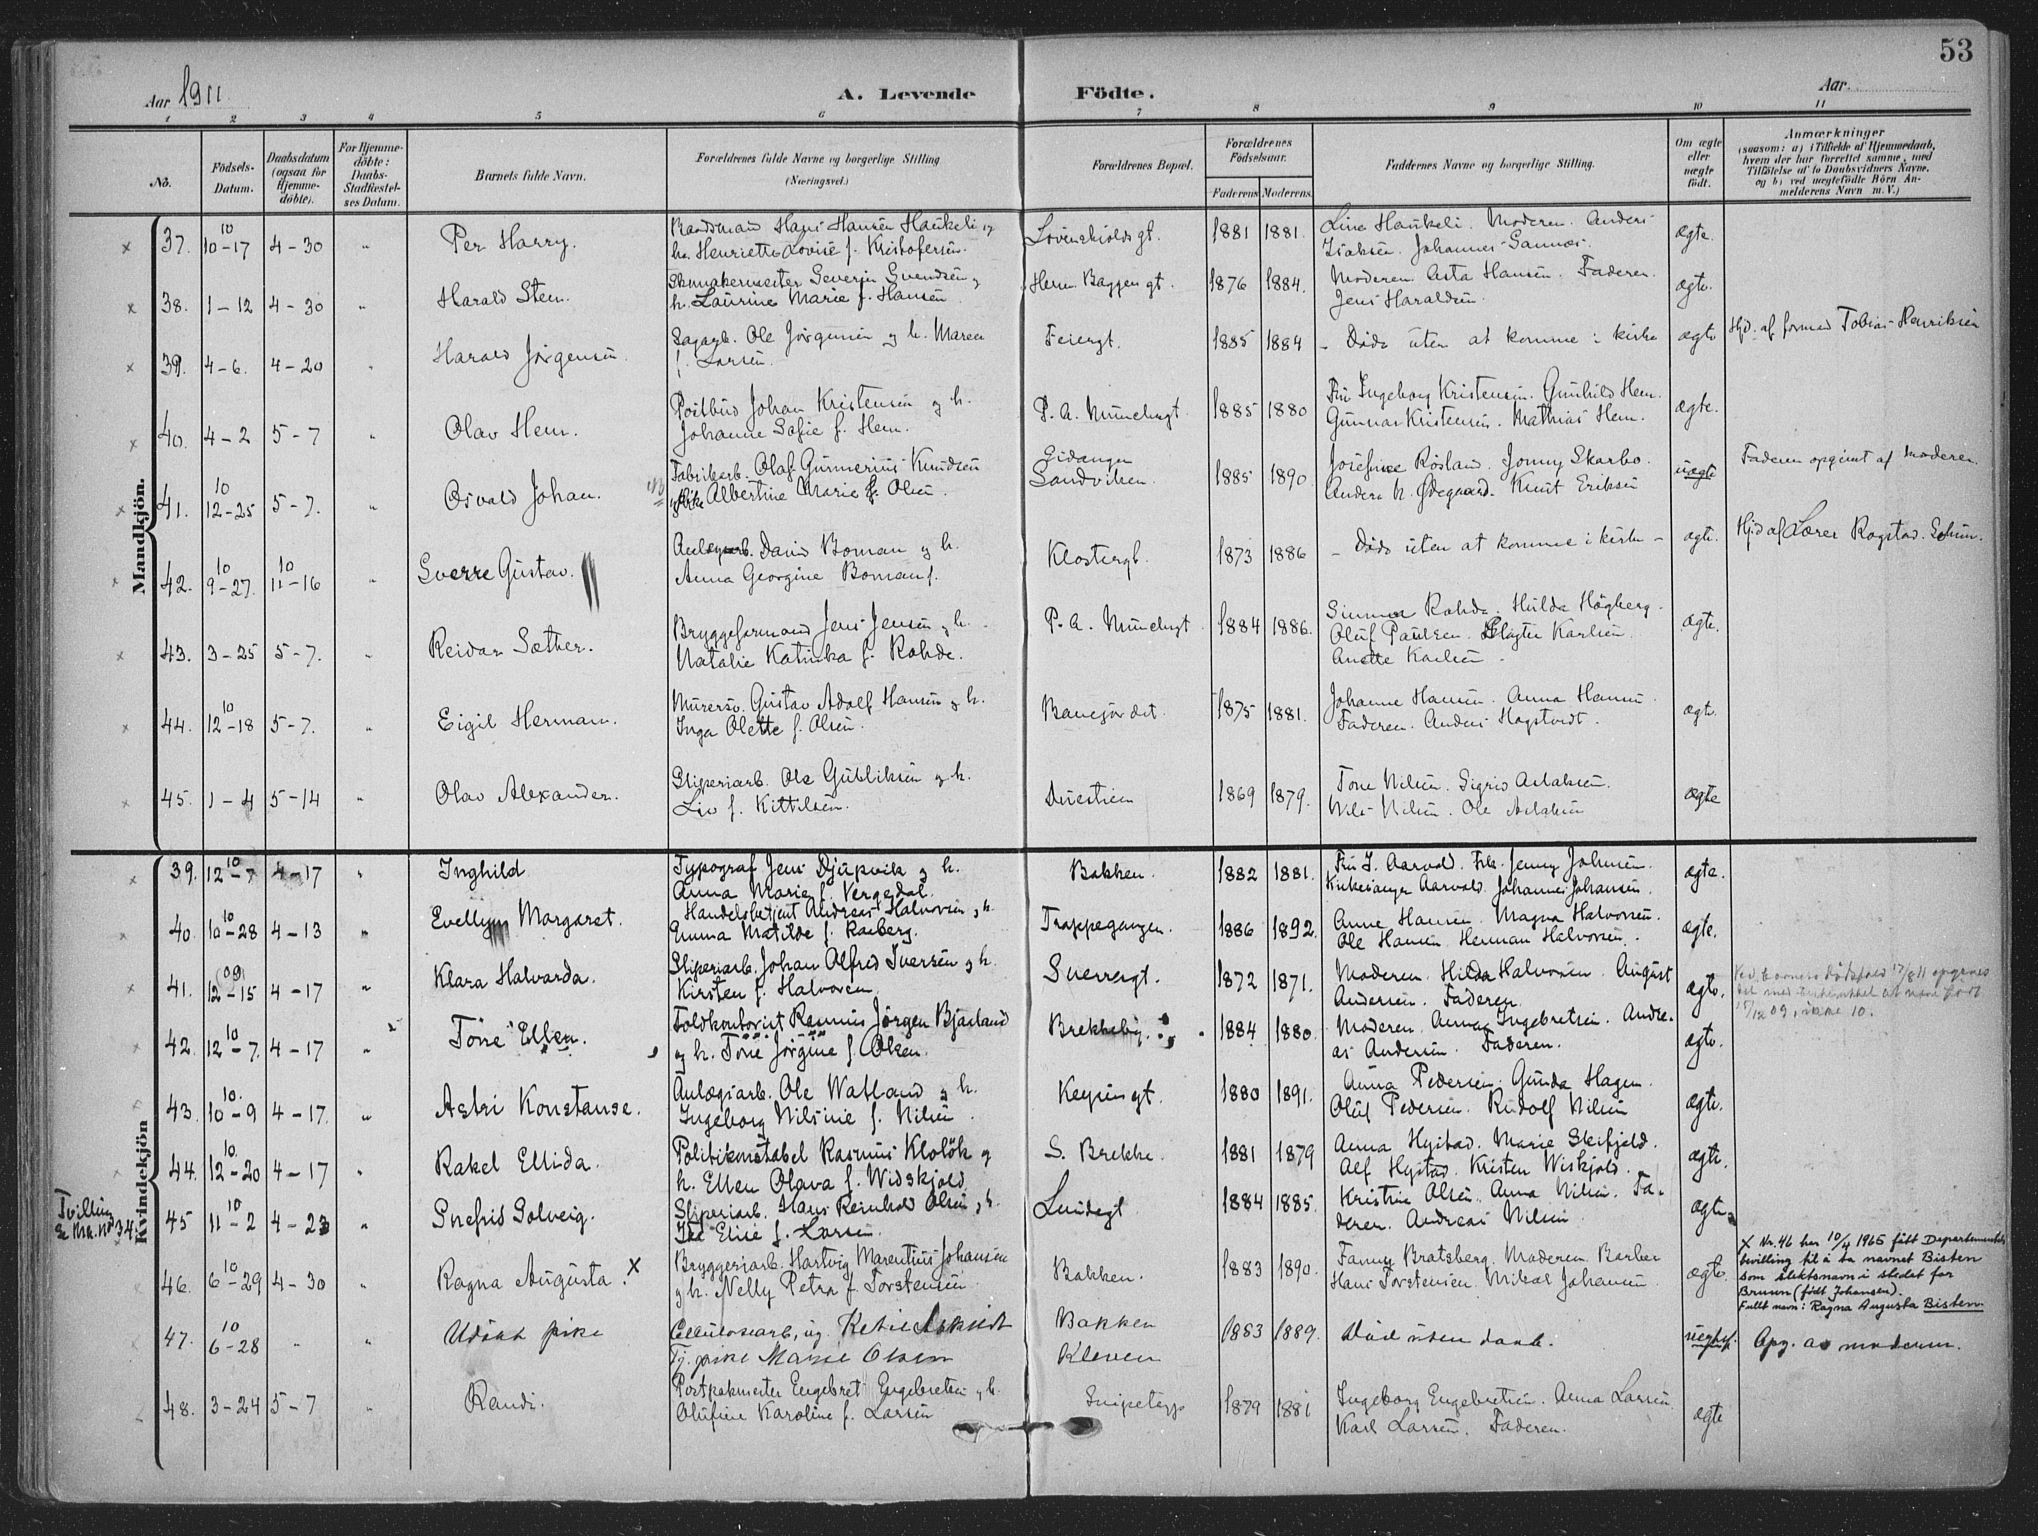 53
Aar 1911
A. Levende
Födte.
Aar.
1 2 3 4 5 6 7 8 9 10 11
No.
Födsels-Datum.
Daabsdatum (ogsaa for Hjemme-döbte).
For Hjemme-döbte: Daabs-Stadfæstel-ses Datum.
Barnets fulde Navn.
Forældrenes fulde Navne og borgerlige Stilling (Næringsvei.)
Forældrenes Bopæl.
Forældrenes Födselsaar.
Faderens Moderens.
Faddernes Navne og borgerlige Stilling.
Om ægte eller uægte födt.
Anmærkninger
(saasom: a) i Tilfælde af Hjemmedaab,
hvem der har forrettet samme, med
Tilföielse af to Daabsvidners Navne,
og b) ved uægtefödte Börn An-
melderens Navn m. V.)
Mandkjön.
37. 10 10-17 4-30 " Per Harry. Baadsmand Hans Hansen Haukeli og
h. Henriette Lovise f. Kristofersen. Løvenskjolds gt. 1881 1881. Lina Haukeli. Moderen. Anders
Isaksen. Johannes Sannes. ægte.
38. 1-12 4-30 " Harald Steen. Skomakermester Severin Svendsen og
h. Laurine Marie f. Hansen Herm. Baggers gt. 1876 1884. Moderen. Asta Hansen. Faderen.
Jens Haraldsen. ægte.
39. 4-6. 4-20 " Harald Jørgensen. Sagarb. Ole Jørgensen og h. Maren
f. Larsen. Feiergt. 1885 1884 - Døde uten at komme i kirke ægte Hjd. af formand Tobias Henriksen
40. 4-2 5-7 " Olav Hem. Postbud Johan Kristensen og h.
Johanne Sofie f. Hem. P. A. Munchsgt. 1885 1880 Fru Ingeborg Kristensen. Gunhild Hem.
Gunnar Kristensen. Mathias Hem. ægte.
41. 10 12-25 5-7. " Osvald Johan. Fabrikarb. Olaf Gunnerius Knudsen
pike Albertine Marie f. Olsen. Eidanger
Sandviken. 1885 1890 Josefine Røsland. Jonny Skarbo.
Anders K. Ødegaard. Knut Eriksen uægte Faderen opgivet af moderen.
42. 10 9-27. 10 11-16 " Sverre Gustav. Anlægsarb. David Boman og h.
Anna Georgine Boman f. Klostergt. 1873 1886 - Døde uten at komme i kirke - ægte. Hjd af Lærer Rogstad. Solum.
43. 3-25 5-7. " Reidar Sæther. Bryggeformand Jens Jensen og h.
Natalie Katinka f. Rohde. P. A. Munchsgt 1884 1886. Rohde. Hulda Högberg.
Oluf Paulsen. Slagter Karlsen.
Anette Karlsen. ægte.
44. 10 12-18 5-7. " Eigil Herman. Murersv. Gustav Adolf Hansen og h.
Inga Olette f. Olsen. Banejordet. 1875 1881. Johanne Hansen. Anna Hansen.
Faderen. Anders Hogstvedt. ægte.
45. 1-4 5-14 " Olav Alexander. Sliperiarb. Ole Gubliksen og h.
Liv f. Kittilsen. Duestien 1869 1879. Tone Nilsen. Sigrid Aslaksen.
Nils Nilsen. Ole Aslaksen ægte
Kvindekjön
39. 10 12-7 4-17 " Inghild Typograf Jens Djupvik og h.
Anna Marie f. Vergedal. Bakken. 1882 1881. Fru J. Aarvold. Frk. Jenny Johnsen.
Kirkesanger Aarvold. Johannes Johansen. ægte.
40. 10 10-28 4-13 " Evellyn Margaret. Handelsbetjent Andreas Halvorsen og h.
Emma Matilde f. Raeberg. Trappegangen. 1886 1892. Anne Hansen. Magna Halvorsen.
Ole Hansen. Herman Halvorsen. ægte.
41. 09 12-15 4-17 " Klara Halvarda. Sliperiarb. Johan Alfred Iversen og h.
Kirsten f. Halvorsen. Sverresgt. 1872 1871. Moderen. Hilda Halvorsen. August
Andersen. Faderen. ægte. Ved barnets dødsfald 17/8 11 opgives
15/12 09, ikke 10.
42. 10 12-7. 4-17 " Tone Ellen. Toldkontorist Rasmus Jörgen Bjaaland
og h. Tone Jörgine f. Olsen. Brekkeby. 1884 1880. Moderen. Anna Ingebretsen. Andre-
as Andersen. Faderen. ægte.
43. 10 10-9 4-17. " Astri Konstanse. Anlægsarb. Ole Watland og h.
Ingeborg Nilsine f. Nilsen. Keysers gt. 1880 1891. Anna Pedersen. Gunda Hagen.
Oluf Pedersen. Rudolf Nilsen ægte.
44. 10 12-20 4-17 " Rakel Ellida. Politikonstabel Rasmus Kloløk og
h. Ellen Olava f. Widskjold. S. Brekke. 1881 1879 Anna Hystad. Marie Skifjeld.
Alf Hystad. Kristen Wiskjold. ægte.
Tvilling
Se Mk. No 34.
45 10 11-2 4-23 " Snefrid Solveig. Sliperiarb. Hans Reinhold Olsen og h.
Ida Elise f. Larsen. Lundegt 1884 1885. Kristine Olsen. Anna Nilsen. Fa-
deren. Andreas Nilsen ægte
46. 10 6-29 4-30 " Ragna Augusta. X Bryggeriarb. Hartvig Marentius Johansen
og h. Nelly Petra f. Torstensen. Bakken. 1883 1890. Fanny Bratsberg. Moderen. Barber
Hans Torstensen. Mikal Johansen ægte. X Nr. 46 har 10/4 1965 fått Departementets
bevilling til å ta navnet Bisten
som slektsnavn i stedet for
Bruun (født Johansen).
Fullt navn: Ragna Augusta Bisten.
47. 10 6-28 " " Udøbt pike Cellulosearb., ug. Ketil
Tj. pike Marie Olsen Bakken
Kleven 1883 1889. Død uten daab. uegte. Opg. av moderen.
48. 3-24 5-7 " Randi. Postpakmester Engebret Engebretsen og h.
Olufine Karoline f. Larsen Snipetorp 1879 1881 Ingeborg Engebretsen. Anna Larsen.
Karl Larsen. Faderen. ægte